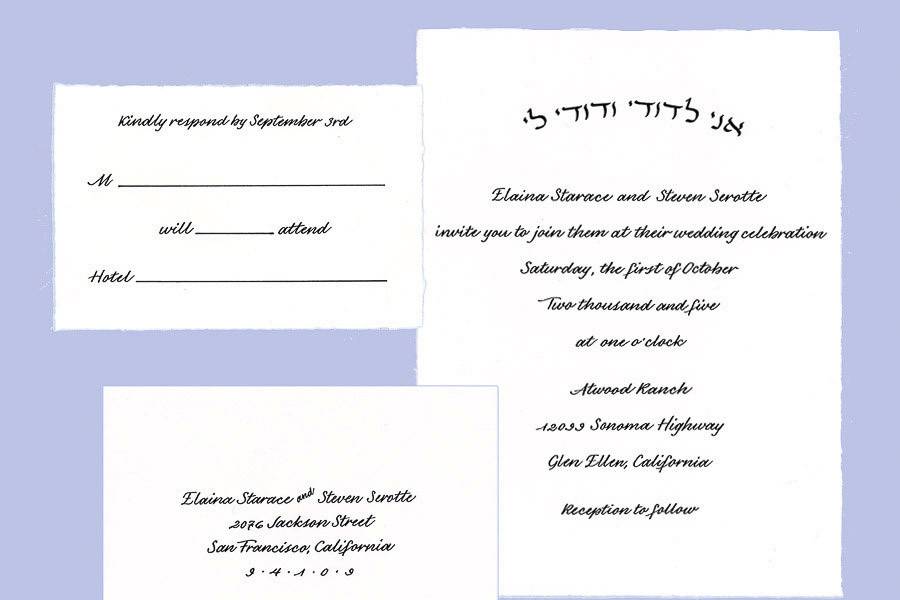 Kindly respond by September 3rd
M
will attend
Hotel
אני לדודי ודודי לי
Elaina Starace and Steven Serotte
invite you to join them at their wedding celebration
Saturday, the first of October
Two thousand and five
at one o'clock
Atwood Ranch
12099 Sonoma Highway
Glen Ellen, California
Reception to follow
Elaina Starace and Steven Serotte
2076 Jackson Street
San Francisco, California
9 · 4 · 1 · 0 · 9